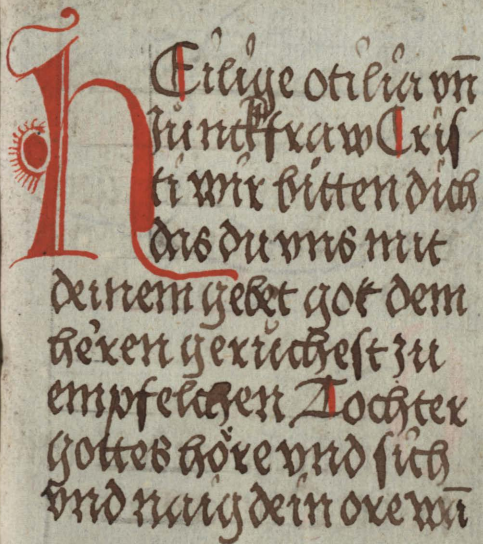 HEilige otilia vn̄
Junckfraw Cris
ti wir bitten dich
das du vns mit
deinem gebet got dem
heren geruchest zu
empfelchen Tochter
gottes höre vnd sich
vnd naig dein ore wā